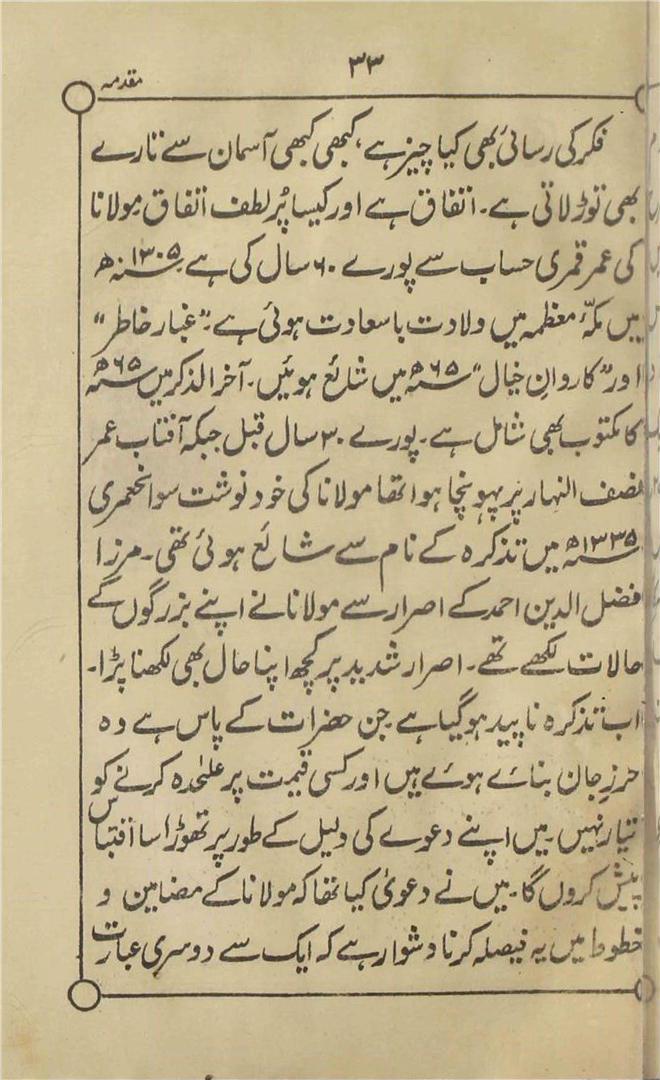 ۳۳
مقدمہ
فکر کی رسائی بھی کیا چیز ہے، کبھی کبھی آسمان سے تارے
بھی توڑ لاتی ہے۔ اتفاق ہے اور کیسا پُر لطف اتفاق مولانا
کی عمر قمری حساب سے پورے ۶۰ سال کی ہے ۱۳۰۵ھ
میں مکّہ معظمہ میں ولادت با سعادت ہوئی ہے۔ "غبار خاطر"
اور "کاروانِ خیال" ۶۵ھ میں شائع ہوئیں۔ آخر الذکر میں ۶۵ھ
کا مکتوب بھی شامل ہے۔ پورے ۳۰ سال قبل جبکہ آفتاب عمر
نصف النہار پر پہونچا ہوا تھا مولانا کی خود نوشت سوانحعمری
۱۳۳۵ھ میں تذکرہ کے نام سے شائع ہوئی تھی۔ مرزا
فضل الدین احمد کے اصرار سے مولانا نے اپنے بزرگوں کے
حالات لکھے تھے۔ اصرار شدید پر کچھ اپنا حال بھی لکھنا پڑا۔
اب تذکرہ ناپید ہو گیا ہے جن حضرات کے پاس ہے وہ
حرزِ جان بنائے ہوئے ہیں اور کسی قیمت پر علٰحدہ کرنے کو
تیار نہیں۔ میں اپنے دعوے کی دلیل کے طور پر تھوڑا سا اقتباس
پیش کروں گا۔ میں نے دعویٰ کیا تھا کہ مولانا کے مضامین و
خطوط میں یہ فیصلہ کرنا دشوار ہے کہ ایک سے دوسری عبارت